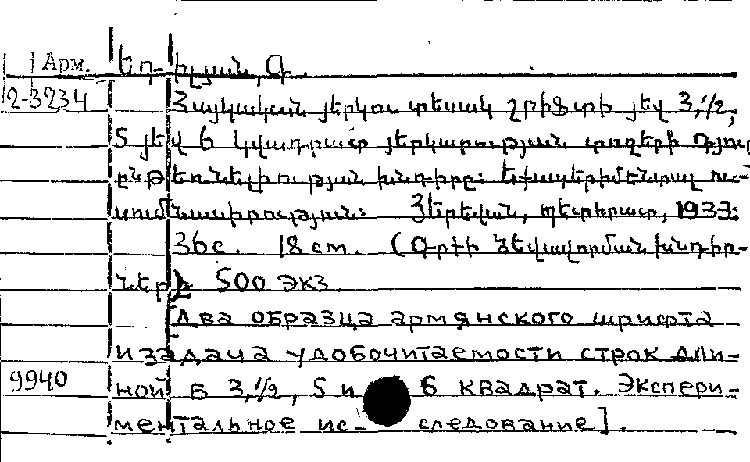 Арм. Եղ-իլյան, Գ.
2-3234 Հայկական յերկու տեսակ շրիֆտի յեվ 3,1/2,
5 յեվ 6 կվադրատ յերկարության տողերի դյու-
ընթեռնելիության խնդիրը: Եքսպերիմենտալ ու-
սումնասիրություն: Յերեվան, պետհրատ, 1933:
36с. 18 cm. (Գրքի ձեվավորման խնդիր-
ներ) 500 экз.
[Два образца армянского шрифта
и задача удобочитаемости строк дли-
9940 ной в 3,1/2, 5 и 6 квадрат. Экспери-
ментальное ис- следование].